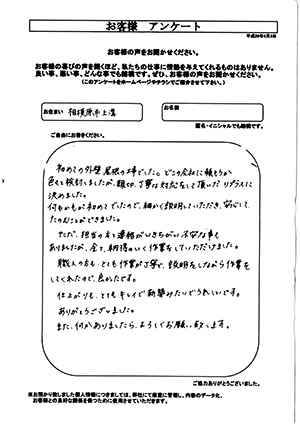 お客様 アンケート
平成29年4月3日
お客様の声をお聞かせください。
お客様の喜びの声を聞くほど、私たちの仕事に情熱を与えてくれるものはありません。
良い事、悪い事、どんな事でも結構です。ぜひ、お客様の声をお聞かせください。
(このアンケートをホームページやチラシでご紹介させて下さい。)
お住まい 相模原市上溝
お名前
匿名・イニシャルでも結構です。
ご自由にお書きください。
初めての外壁、屋根の工事でした。どこの会社に頼もうか
色々検討しましたが、親切、丁寧な対応をして頂いたリプラスに
決めました。
何もかもが初めてでしたので、細かく説明していただき、安心して
たのむことができました。
ただ、担当の方と連絡がいきちがい不安な事も
ありましたが、全て、納得のいく作業をしていただけました。
職人の方も、とても作業が丁寧で、説明をしながら作業を
してくれたので、良かったです。
仕上がりも、とてもキレイで新築みたいでうれしいです。
ありがとうございました。
また、何かありましたら、よろしくお願い致します。
ご協力ありがとうございました。
※お預かり致しました個人情報につきましては、弊社にて厳重に管理し、内容のデータ化、
お客様との良好な関係を築くために使用させていただきます。